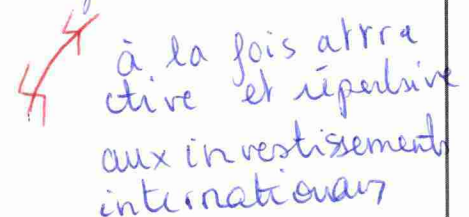 à la fois attra
ctive et répulsive
aux investissements
internationaux